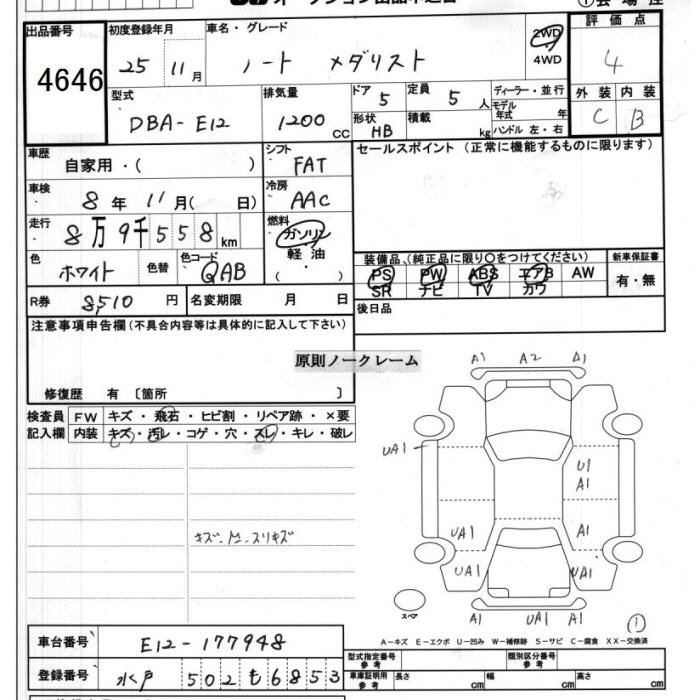 出品番号
4646
初度登録年月
25 11月
車名・グレード
ノート メダリスト
2WD
4WD
評価点
4
外装 内装
C B
型式
DBA-E12
排気量
1200cc
ドア 5
定員 5人
形状 HB
積載 kg
ディーラー・並行
モデル年式 年
ハンドル 左・右
車歴 自家用・( )
シフト FAT
セールスポイント (正常に機能するものに限ります)
車検 8年 11月( 日)
冷房 AAC
走行 8万9千558km
燃料 ガソリン
軽油
( )
色 ホワイト 色替 色コード QAB
装備品、(純正品に限り○をつけてください)
新車保証書
PS PW ABS エアB AW
SR ナビ TV カワ
有・無
R券 8,510円 名変期限 月 日
後日品
注意事項申告欄(不具合内容等は具体的に記入して下さい)
原則ノークレーム
修復歴 有 〔箇所 〕
検査員記入欄
FW キズ・飛石・ヒビ割・リペア跡・×要
内装 キズ・汚レ・コゲ・穴・スレ・キレ・破レ
A1 A2 A1
UA1
U1
A1
UA1 A1
UA1 UA1
A1 UA1 A1
スペア
1
A-キズ E-エクボ U-凹み W-補修跡 S-サビ C-腐食 XX-交換済
車台番号 E12-177948
登録番号 水戸 502 も 6853
型式指定番号参考
類別区分番号参考
車庫証明用参考 長さ cm 幅 cm 高さ cm